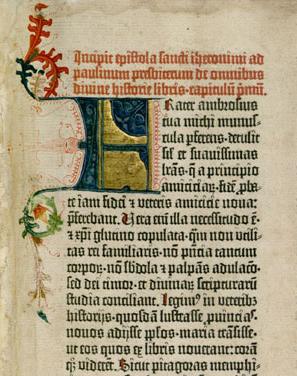 Incipit epistola sancti iheronimi ad
paulinum presbiterum de omnibus
divine historie libris. capitulū pmū.
Frater ambrosius
tua michi munus-
cula pferens. detulit
sil' et suavissimas
lrās. q̄ a principio
amiciciarū. fidē pba-
te iam fidei et veteris amicicie nova:
pferebant. Vera enī illa necessitudo ē.
et xp̄i glutino copulata. qm̄ non utili-
tas rei familiaris. nō pn̄cia tantum
corporū. nō sbdola et palpās adulacō.
sed dei timor. et divinarū scripturarū
studia conciliant. Legimꝰ in veteribꝫ
historijs. quosdā lustrasse puīcias.
novos adijsse pplōs. maria trāsisse.
ut eos quos ex libris noverant: corā
qꝫ viderēt. Sicut pitagoras memphi-